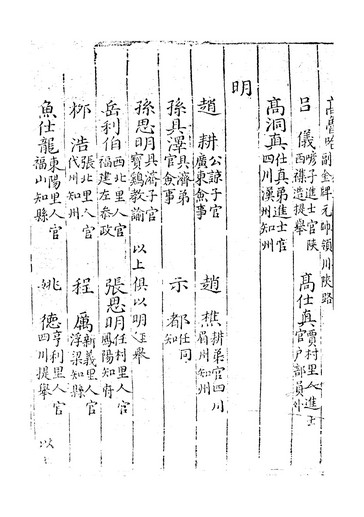 副金牌元帥領川陝路
呂儀 嗲子進士官陝西 提舉
高仕真 賈村里人進士官户部員外
高洞真 仕真弟進士官四川漢州知州
明
趙耕 公諒子官廣東僉事
趙樵 耕弟官四川眉州知州
孫具澤 具濟弟官僉事
示都 仕同知
孫思明 具濟子官寶鷄教諭 以上俱以明 舉
岳利伯 西北里人官福建左參政
張思明 任村里人官鳳陽知府
栁浩 張北里人官代州知州
程厲 新義里人官浮梁知縣
魚仕龍 東陽里人官福山知縣
姚德 亨利里人官四川提舉 以